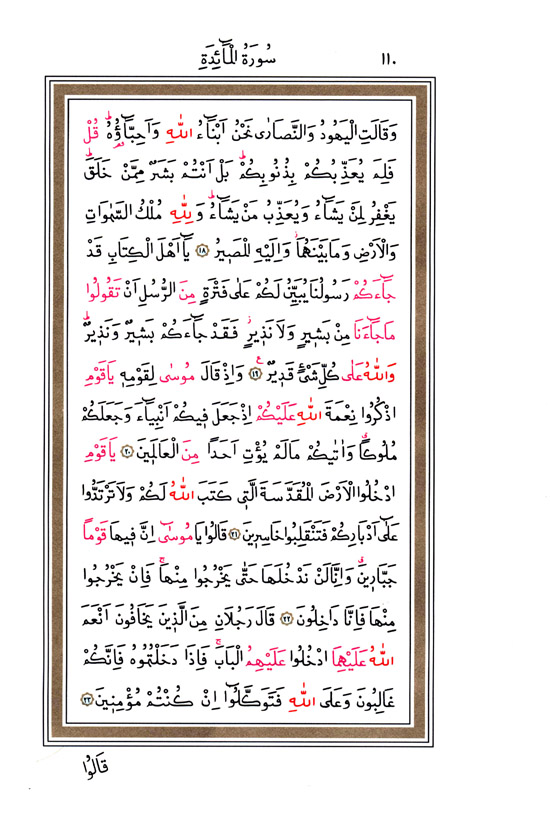 ١١٠ سُورَةُ الْمَآئِدَةِ
وَقَالَتِ الْيَهُودُ وَالنَّصَارٰى نَحْنُ اَبْنَٓاءُ اللّٰهِ وَاَحِبَّٓاؤُ۬هُۜ قُلْ
فَلِمَ يُعَذِّبُكُمْ بِذُنُوبِكُمْۜ بَلْ اَنْتُمْ بَشَرٌ مِمَّنْ خَلَقَۜ
يَغْفِرُ لِمَنْ يَشَٓاءُ وَيُعَذِّبُ مَنْ يَشَٓاءُۜ وَلِلّٰهِ مُلْكُ السَّمٰوَاتِ
وَالْاَرْضِ وَمَا بَيْنَهُمَاۘ وَاِلَيْهِ الْمَص۪يرُ ﴿١٨﴾ يَٓا اَهْلَ الْكِتَابِ قَدْ
جَٓاءَكُمْ رَسُولُنَا يُبَيِّنُ لَكُمْ عَلٰى فَتْرَةٍ مِنَ الرُّسُلِ اَنْ تَقُولُوا
مَا جَٓاءَنَا مِنْ بَش۪يرٍ وَلَا نَذ۪يرٍۘ فَقَدْ جَٓاءَكُمْ بَش۪يرٌ وَنَذ۪يرٌۜ
وَاللّٰهُ عَلٰى كُلِّ شَيْءٍ قَد۪يرٌ۟ ﴿١٩﴾ وَاِذْ قَالَ مُوسٰى لِقَوْمِه۪ يَا قَوْمِ
اذْكُرُوا نِعْمَةَ اللّٰهِ عَلَيْكُمْ اِذْ جَعَلَ ف۪يكُمْ اَنْبِيَٓاءَ وَجَعَلَكُمْ
مُلُوكًاۗ وَاٰتٰيكُمْ مَا لَمْ يُؤْتِ اَحَدًا مِنَ الْعَالَم۪ينَ ﴿٢٠﴾ يَا قَوْمِ
ادْخُلُوا الْاَرْضَ الْمُقَدَّسَةَ الَّت۪ي كَتَبَ اللّٰهُ لَكُمْ وَلَا تَرْتَدُّوا
عَلٰٓى اَدْبَارِكُمْ فَتَنْقَلِبُوا خَاسِر۪ينَ ﴿٢١﴾ قَالُوا يَا مُوسٰٓى اِنَّ ف۪يهَا قَوْمًا
جَبَّار۪ينَۗ وَاِنَّا لَنْ نَدْخُلَهَا حَتّٰى يَخْرُجُوا مِنْهَاۚ فَاِنْ يَخْرُجُوا
مِنْهَا فَاِنَّا دَاخِلُونَ ﴿٢٢﴾ قَالَ رَجُلَانِ مِنَ الَّذ۪ينَ يَخَافُونَ اَنْعَمَ
اللّٰهُ عَلَيْهِمَا ادْخُلُوا عَلَيْهِمُ الْبَابَۚ فَاِذَا دَخَلْتُمُوهُ فَاِنَّكُمْ
غَالِبُونَ وَعَلَى اللّٰهِ فَتَوَكَّلُٓوا اِنْ كُنْتُمْ مُؤْمِن۪ينَ ﴿٢٣﴾
قَالُوا